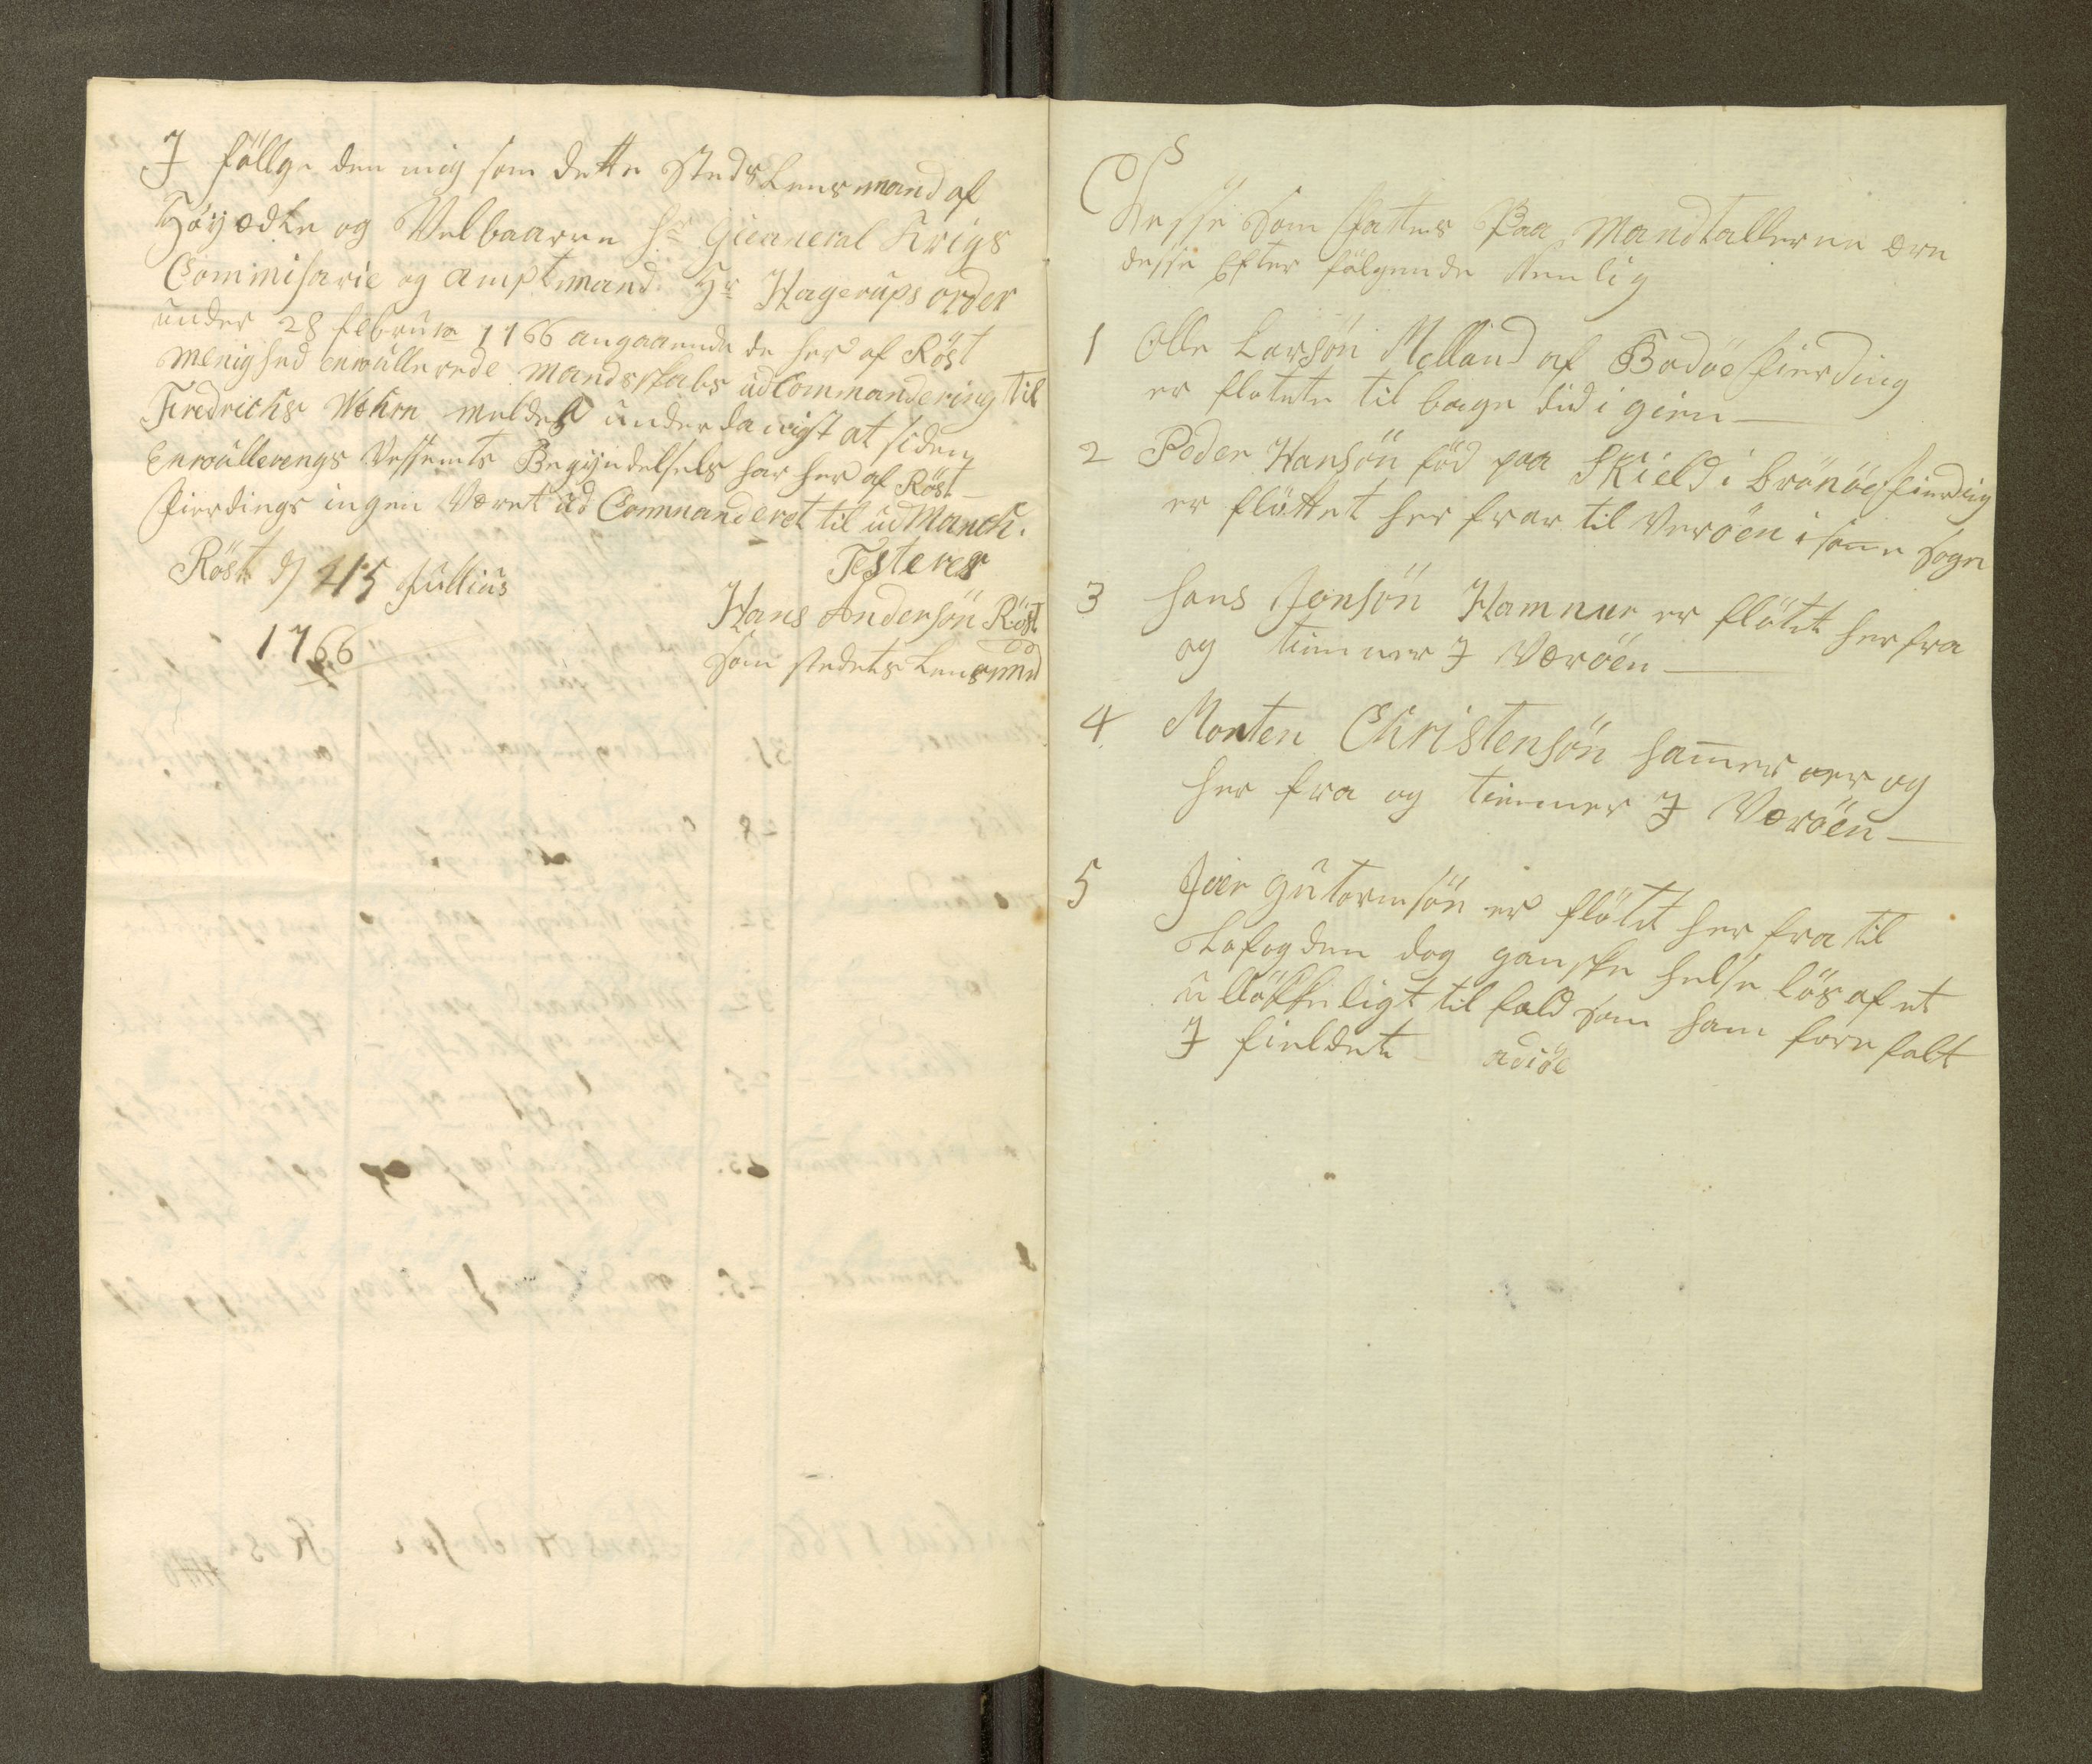 I föllge den mig som dette Steds Lensmand af
Höyædle og Velbaarne Hr Gieaneral Krigs
Commisarie og amptmand Hr Hagerups order
under 28 februar 1766 angaaende de her af Röst
menighed enroullerede mandsskabs udCommandering til
Fredrichs Wehrn meldes underdanigst at siden
Enroullerengs Vessents Begyndelsels har her af Röst
fierdings ingen Været ud Commanderet til udMarch.
Testerer
Röst d 15 Jullius
1766
Hans Andersön Röst
som stedets Lensmand
Desse som fattes Paa Mandtallerne ere
desse Efter fölgende Nemlig
1 Olle Larsön Melland af Bodöe fierding
er flötete til bage did i gien
2 Peder Hansön föd paa Skield i Brönöe fierding
er flöttet her fraa til Veröen i same Sogn
3 Hans Jonsön Hamnue er flötit her fra
og tienner I Weröen
4 Morten Christensön hamer er og
her fra og tienner I Weröen
5 Iver Gutormsön er flötit her fra til
Lofogden dog ganske helse lös af et
u llökkeligt til fald som ham fore falt
I fieldet adiöe